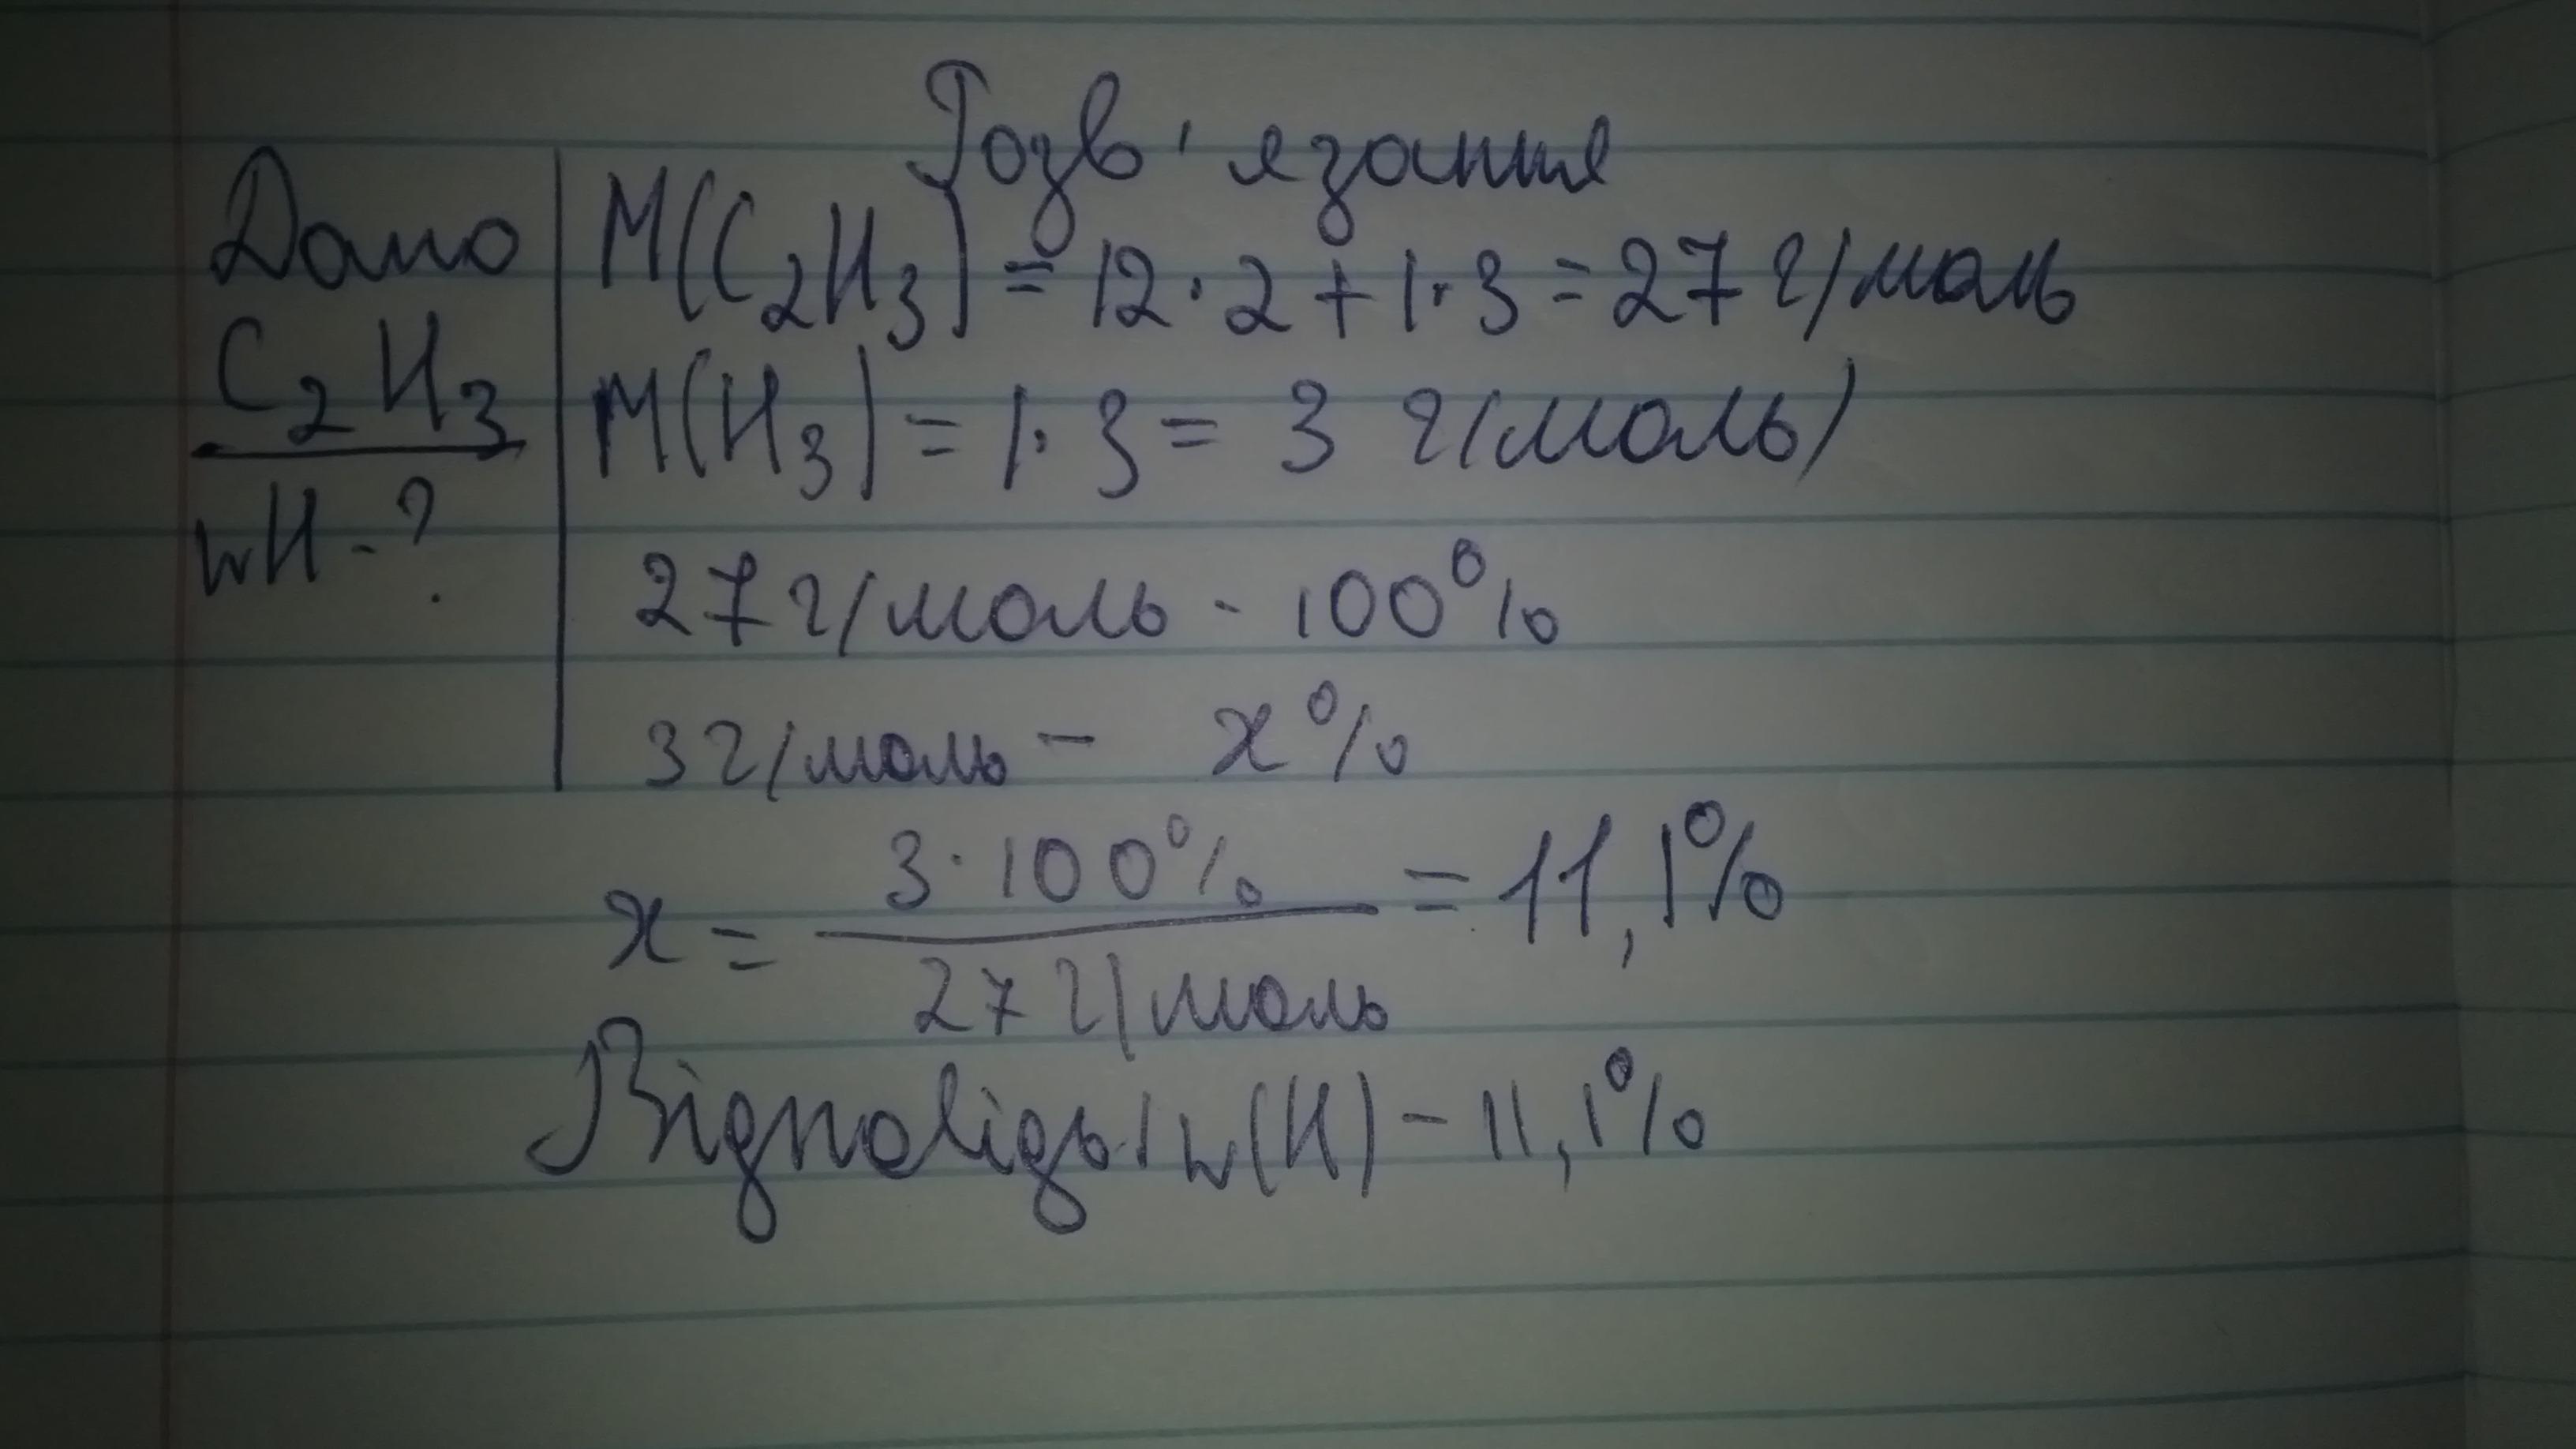 Розв'язання
Дано
C₂H₃
wH-?
M(C₂H₃) = 12·2+1·3=27 г/моль
M(H₃) = 1·3= 3 г/моль)
27 г/моль - 100%
3 г/моль - x%
x = 3·100% / 27 г/моль = 11,1%
Відповідь: w(H) - 11,1%